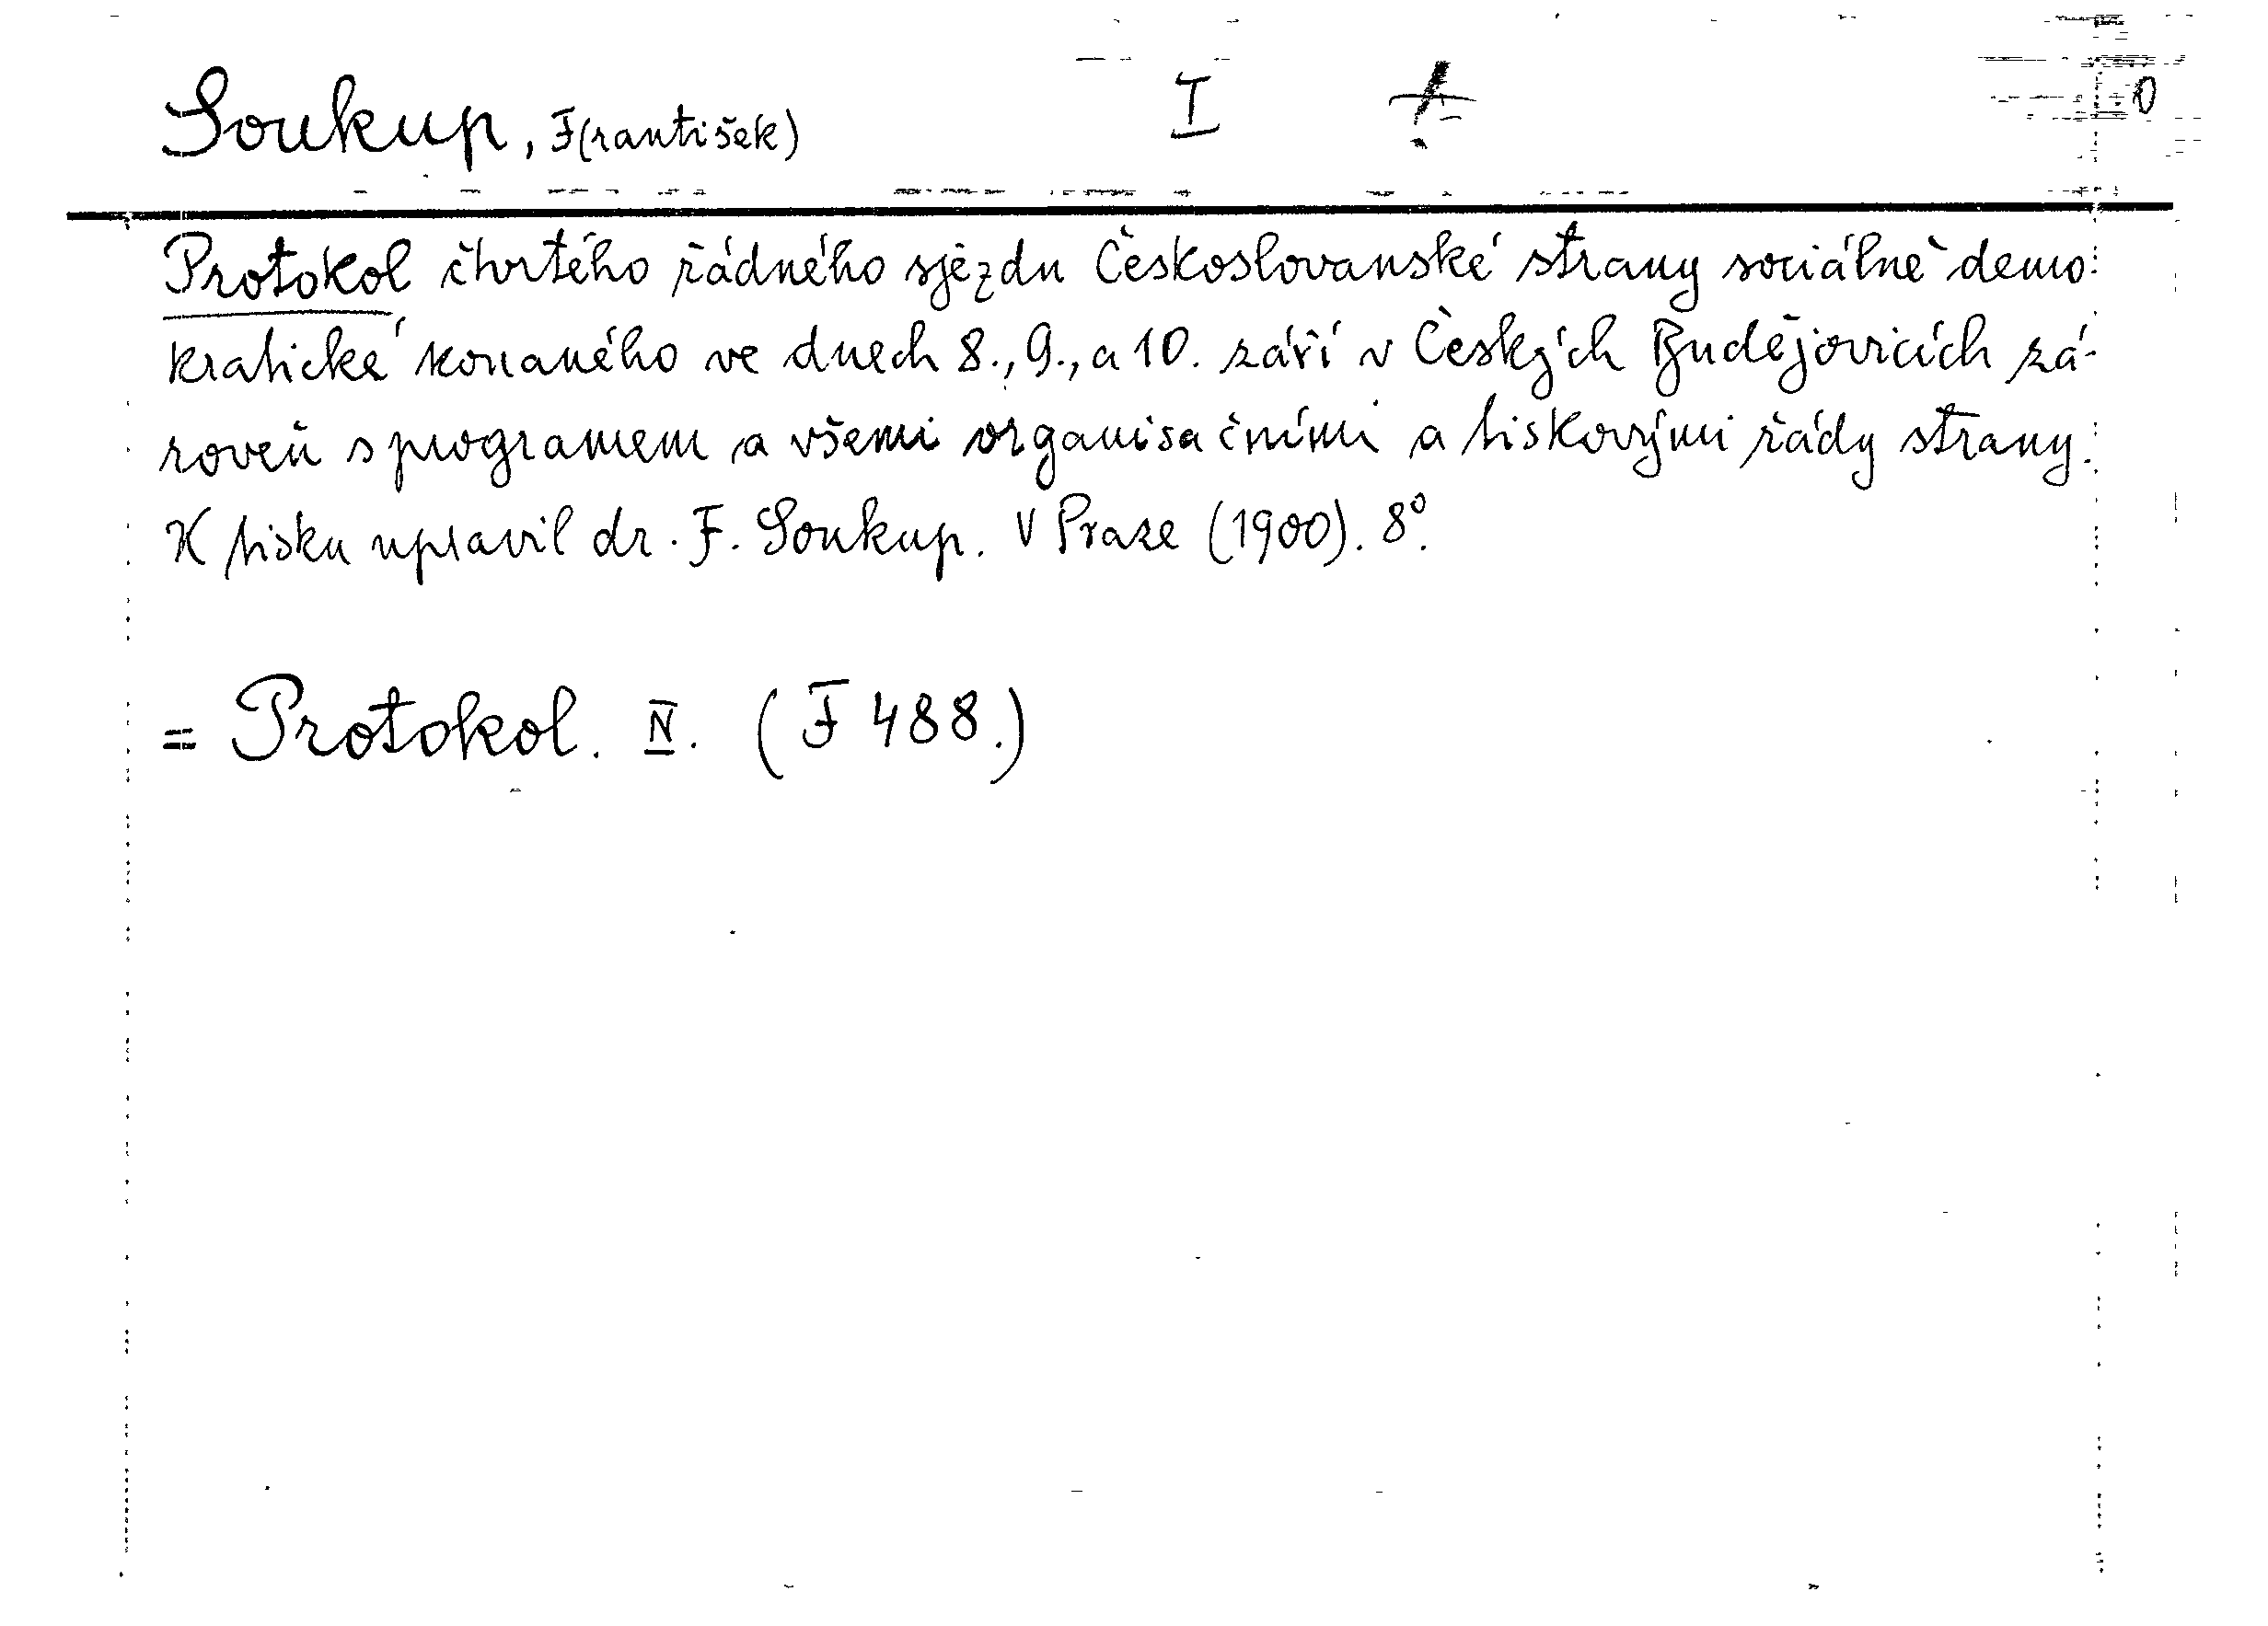 Soukup, F(rantišek) I
Protokol čtvrtého řádného sjezdu Českoslovanské strany sociálně demo-
kratické konaného ve dnech 8., 9., a 10. září v Českých Budějovicích zá-
roveň s programem a všemi organisačními a tiskovými řády strany.
K tisku upravil dr. F. Soukup. V Praze (1900). 8°.
= Protokol. IV. (F 488.)